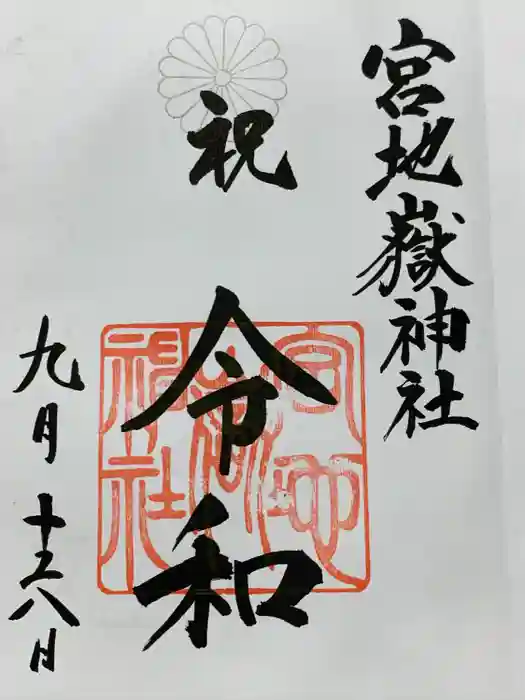 宮地嶽神社
祝
令和
九月十八日
宮地嶽神社